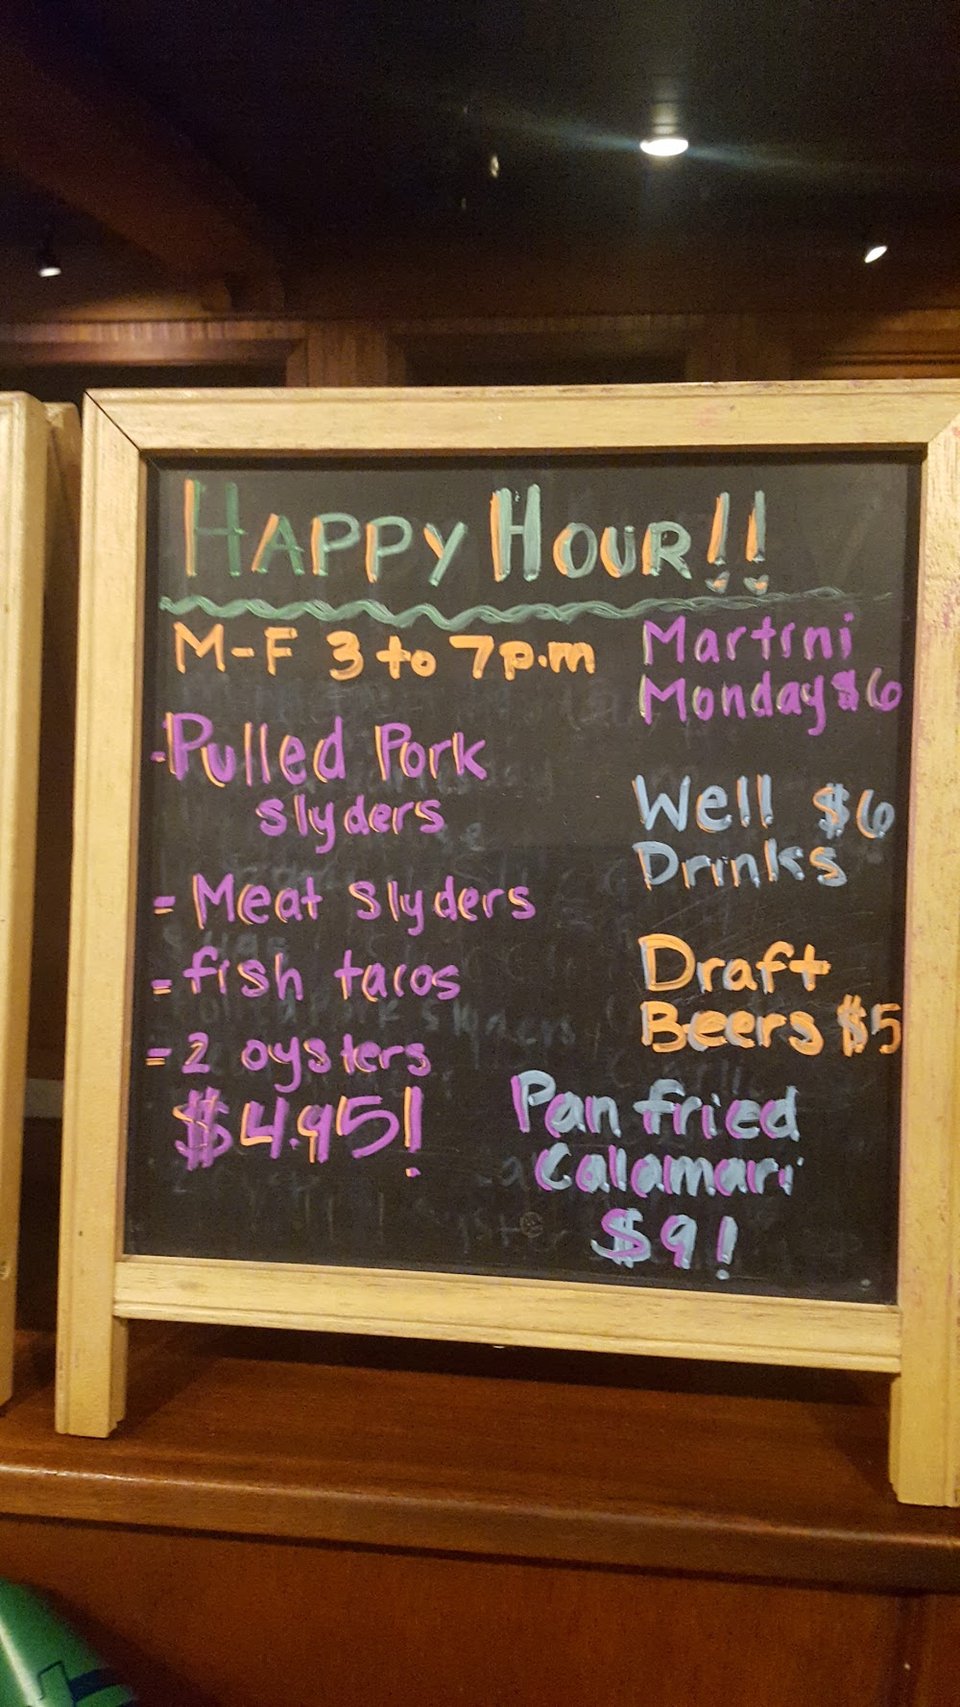 HAPPY HOUR!!
M-F 3 to 7p.m
-Pulled Pork
slyders
= Meat slyders
= fish tacos
= 2 oysters
$4.95!
Martini
Monday $6
Well $6
Drinks
Draft
Beers $5
Pan fried
Calamari
$9!